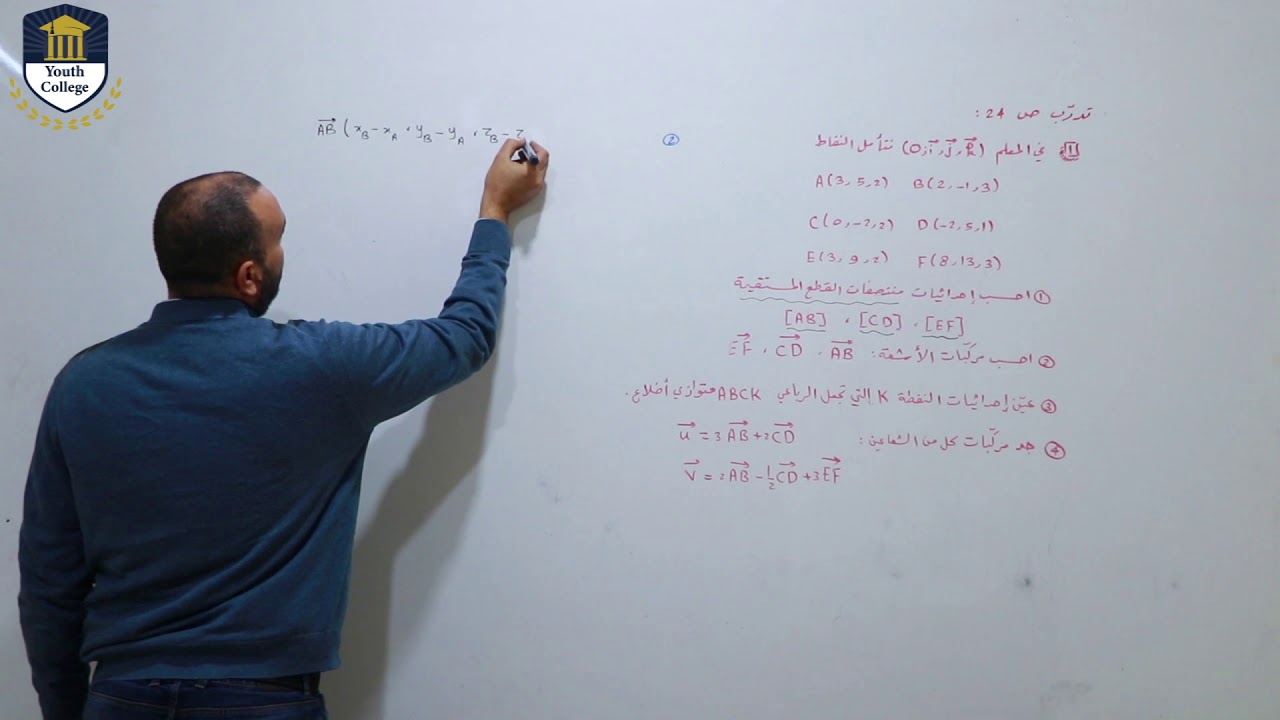 Youth
College
تدرّب ص 24 :
1 في المعلم (O, i, j, k) نتأمل النقاط
A(3, 5, 2) B(2, -1, 3)
C(0, -2, 2) D(-2, 5, 1)
E(3, 9, 2) F(8, 13, 3)
① احسب إحداثيات منتصفات القطع المستقيمة
[AB] , [CD] , [EF]
② احسب مركّبات الأشعة: AB , CD , EF
③ عيّن إحداثيات النقطة K التي تجعل الرباعي ABCK متوازي أضلاع.
④ جد مركّبات كل من الشعاعين:
u = 3AB + 2CD
v = 2AB - 1/2 CD + 3EF
②
AB (x_B - x_A , y_B - y_A , z_B - z